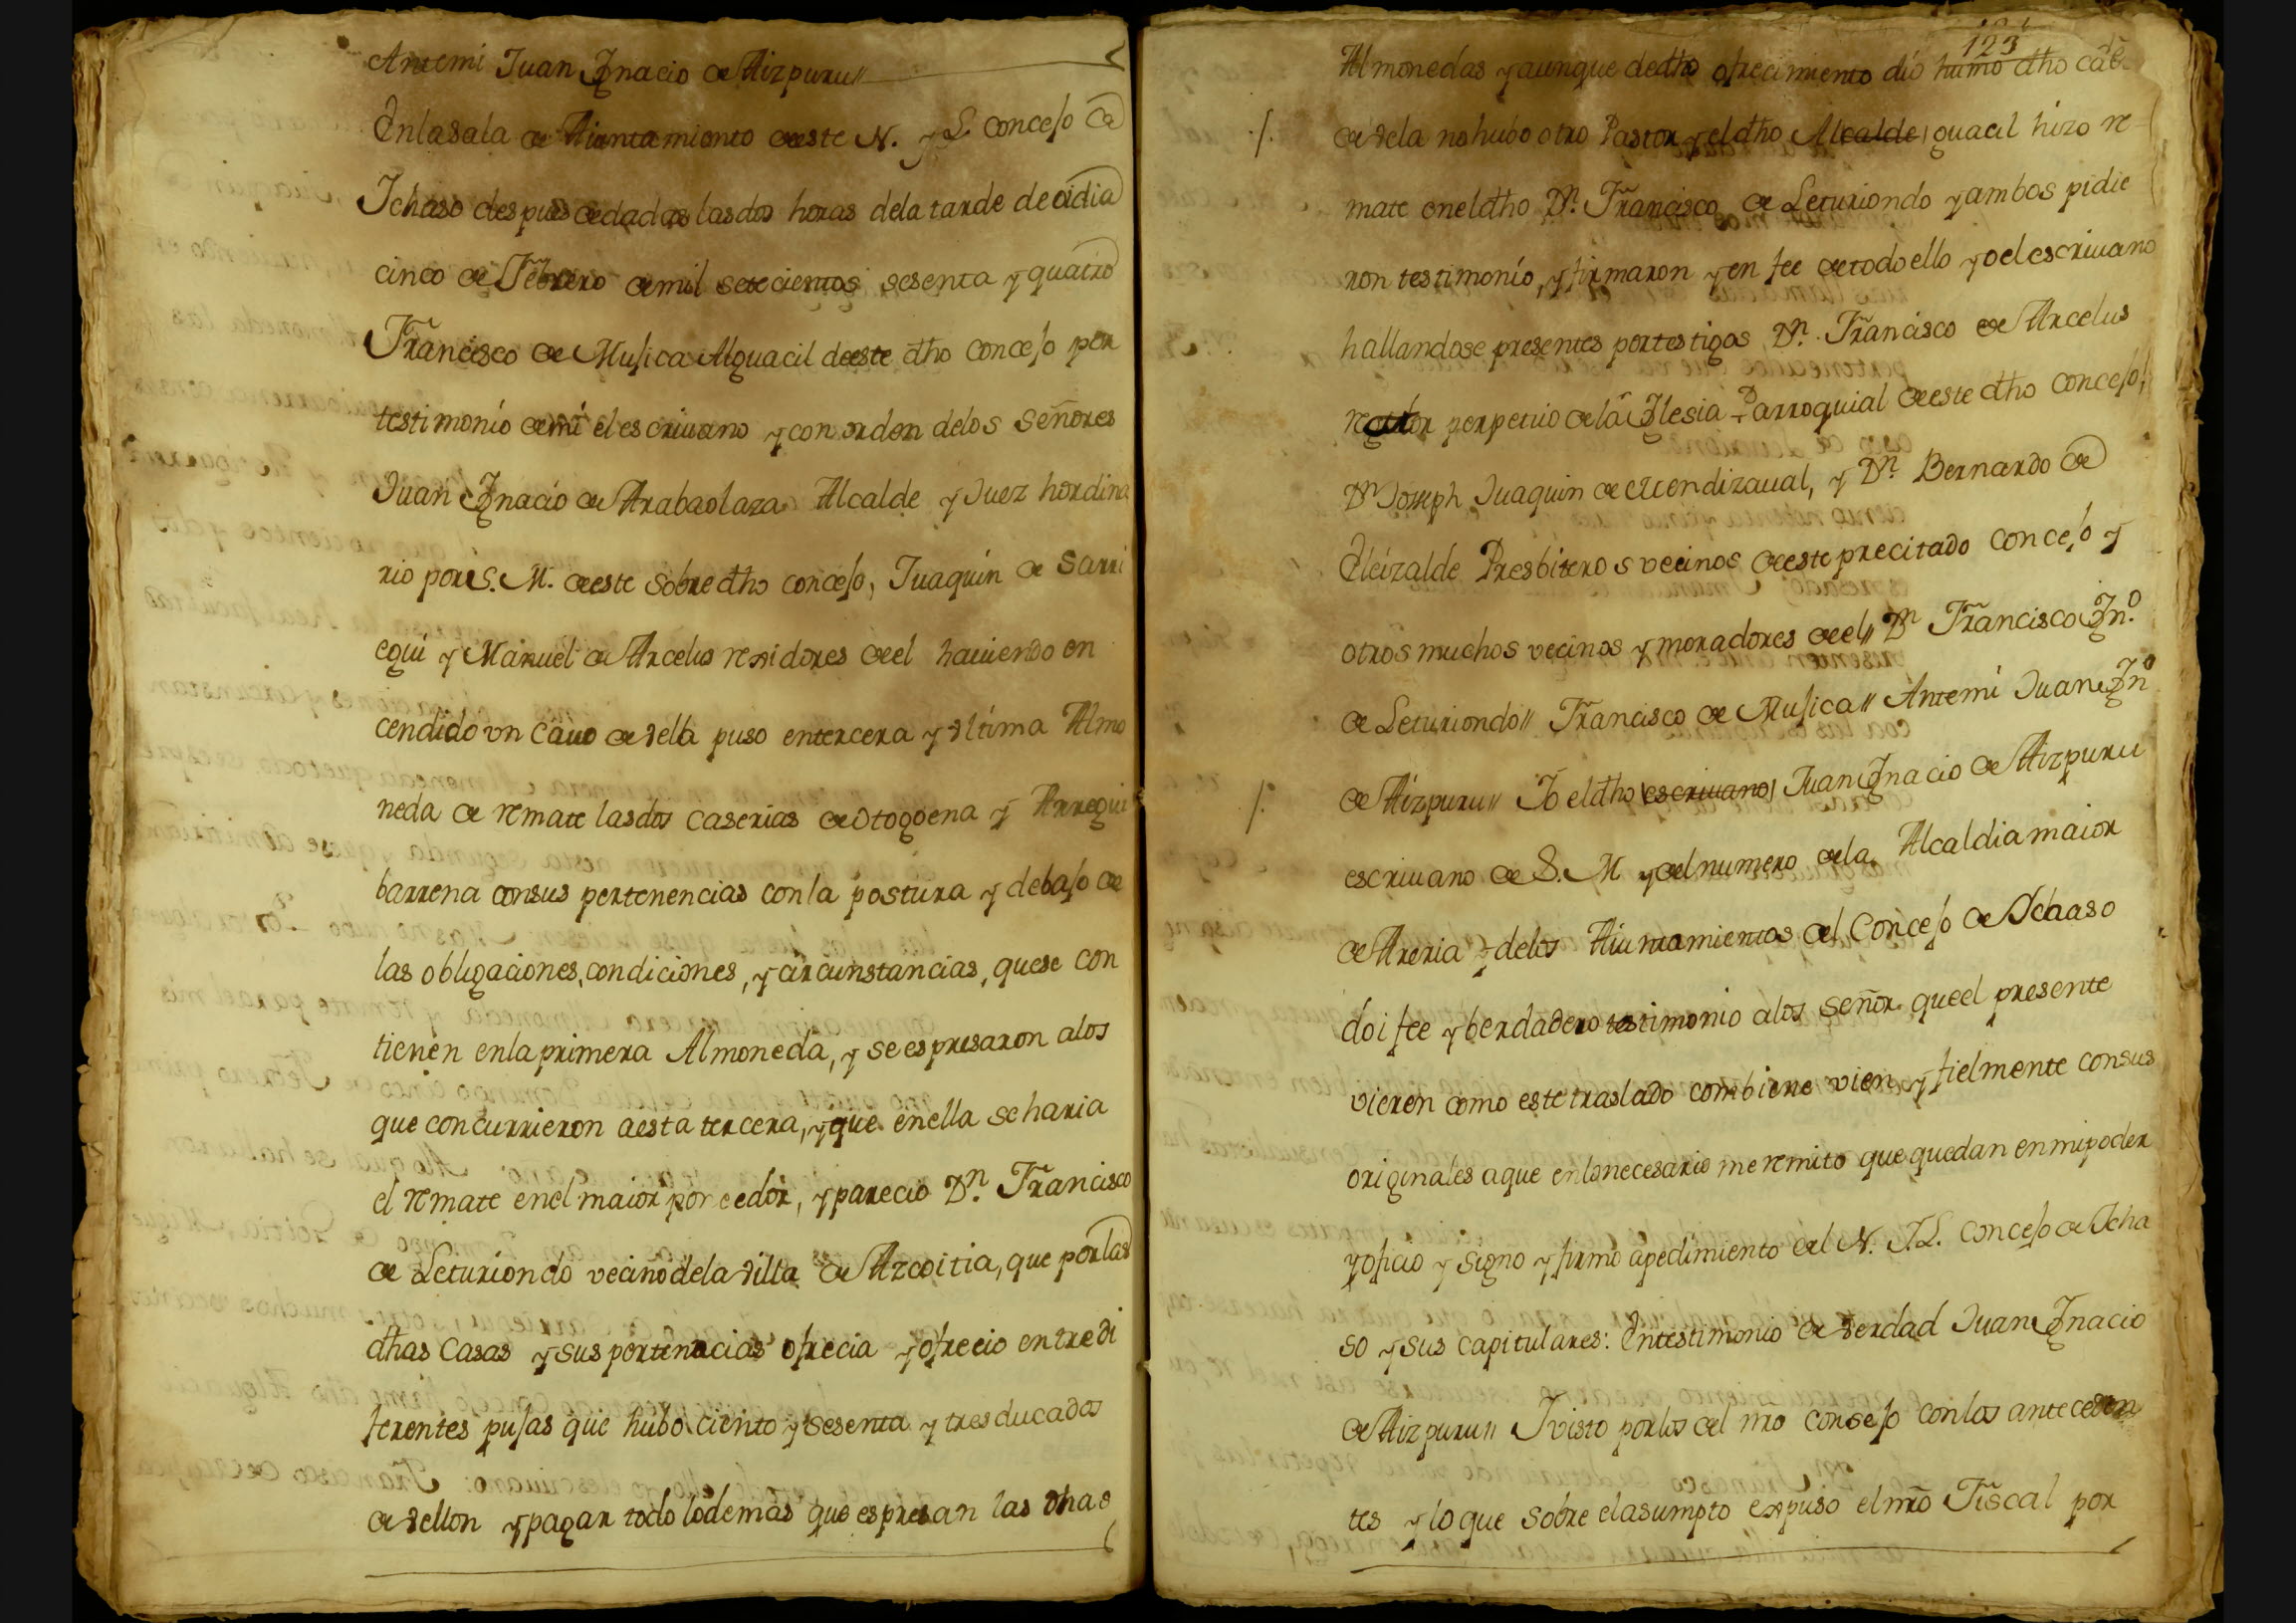 Antemi Juan Ignacio de Aizpuru//
Enlasala de Aiuntamiento deeste N. y L. concejo de
Ichaso despues dedadas lasdos horas dela tarde de oidia
cinco de Febrero demil setecientos sesenta y quatro
Francisco de Musica Alguacil deeste dho concejo por
testimonio demi el escriuano y con orden delos Señores
Juan Ignacio de Arabaolaza Alcalde y Juez hordina
rio por S. M. deeste sobre dho concejo, Juaquin de Sarri
egui y Manuel de Arcelus rexidores deel hauiendo en
cendido vn Cauo de vela puso entercera y vltima Almo
neda de remate lasdos caserias de Otogoena y Arregui
barrena consus pertenencias conla postura y debajo de
las obligaciones, condiciones, y circunstancias, quese con
tienen enlaprimera Almoneda, y se espresaron alos
que concurrieron aesta tercera, y que enella se haria
el remate enel maior porcedor, y parecio Dn. Francisco
de Leturiondo vecino dela villa de Azcoitia, que porlas
dhas Casas y sus pertenacias ofrecia y ofrecio entredi
ferentes pujas que hubo ciento y sesenta y tres ducados
de vellon y pagar todo lodemas que espresan las dhas
123
Almonedas y aunque dedho ofrecimiento dió humo dho cabo
de vela nohubo otro Pastor y eldho Alcalde guacil hizo re
mate eneldho Dn. Francisco de Leturiondo y ambos pidie
ron testimonio, y firmaron y en fee detodoello yo el escriuano
hallandose presentes portestigos Dn. Francisco de Arcelus
rector perpetuo dela Iglesia Parroquial deeste dho concejo,
Dn Joseph Juaquin de Mendizaual, y Dn. Bernardo de
Eleizalde Presbiteros vecinos deeste precitado concejo y
otros muchos vecinos y moradores deel// Dn Francisco Igno.
de Leturiondo// Francisco de Musica// Antemi Juan Igno
de Aizpuru// Io eldho escriuano Juan Ignacio de Aizpuru
escriuano de S. M y del numero dela Alcaldia maior
de Areria y delos Aiuntamientos del Concejo de Ichaso
doi fee y berdadero testimonio alos señor. queel presente
vieren como este traslado combiene vien, y fielmente consus
originales aque enlonecesario meremito que quedan enmipoder
y oficio y signo y firmo apedimiento del N. I L. concejo de Icha
so y sus capitulares: Entestimonio de verdad Juan Ignacio
de Aizpuru// I visto porlos del nro consejo conlos anteceden
tes y lo que sobre elasumpto expuso elnro Fiscal por